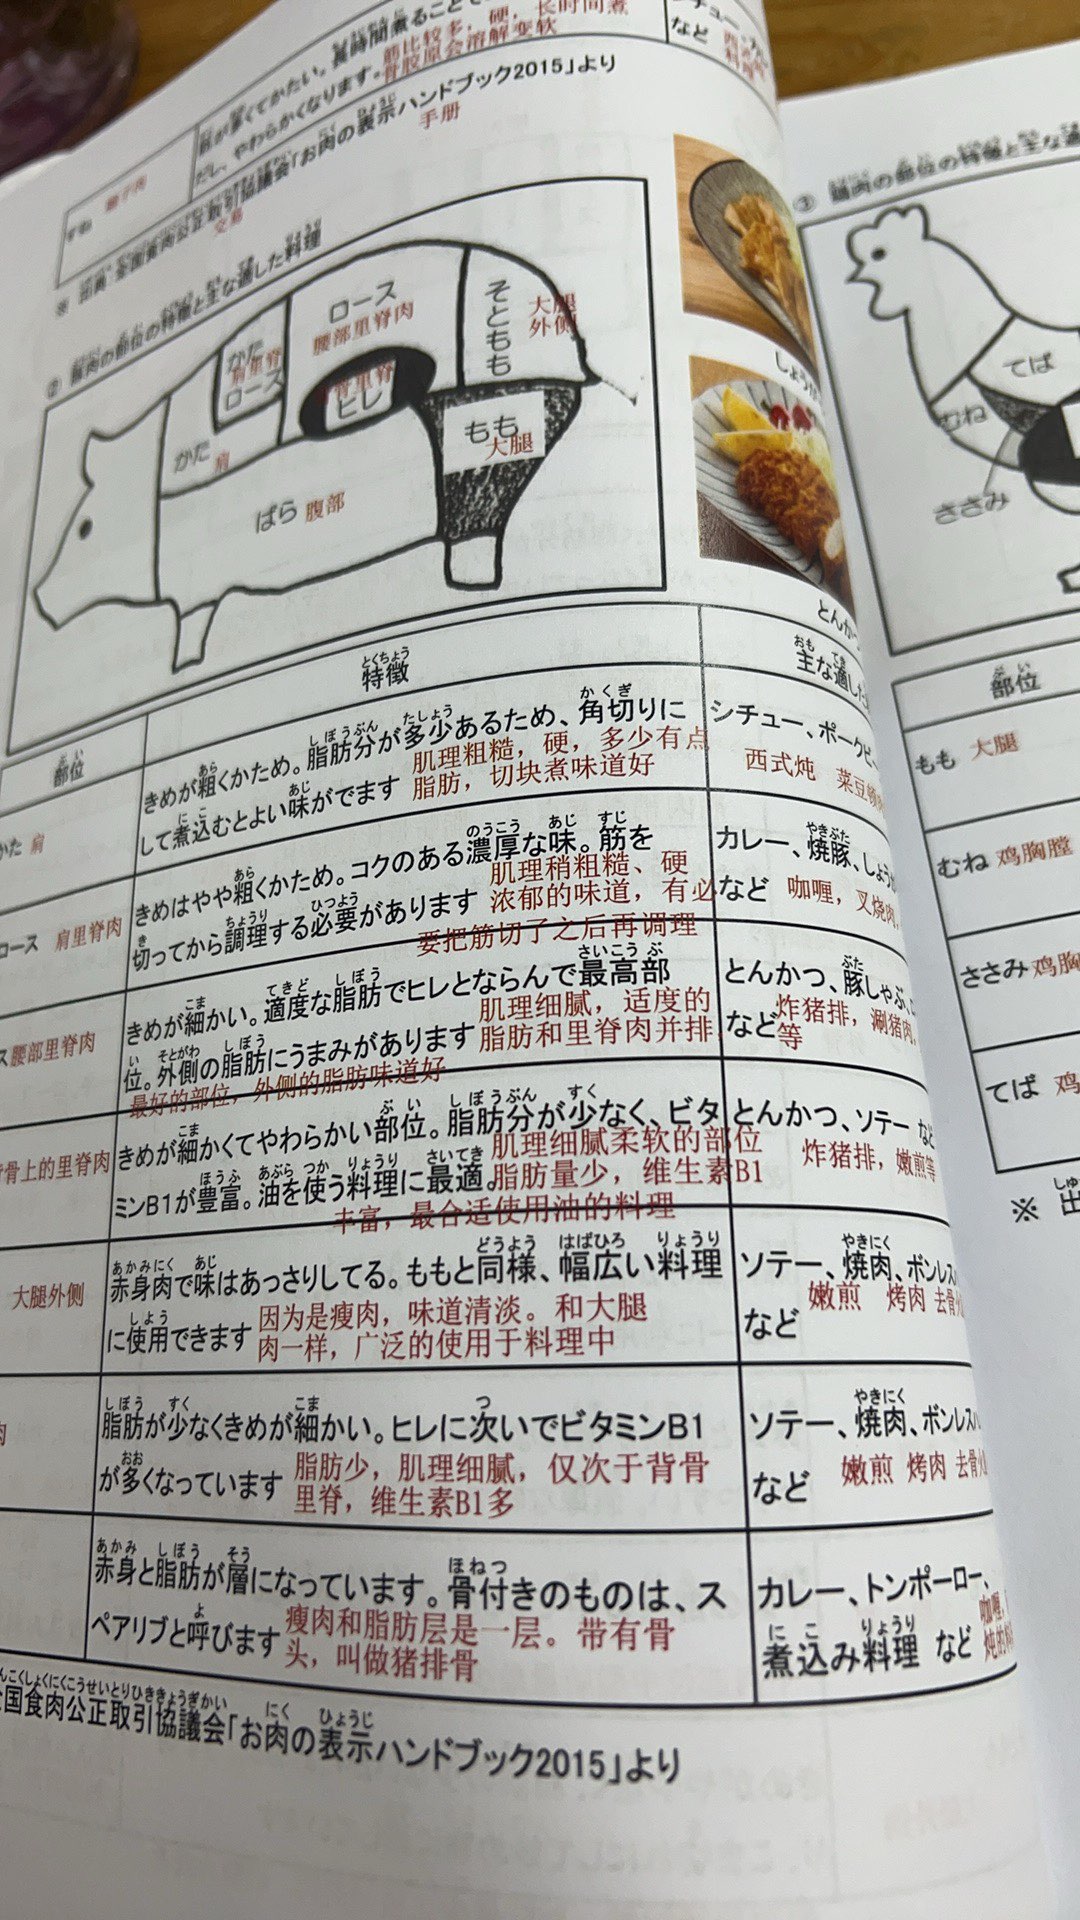 筋が多くてかたい。長時間煮ることで
筋比较多，硬，长时间煮
だし、やわらかくなります。
骨胶原会溶解变软
など
すね
※ 出典:全国食肉公正取引協議会「お肉の表示ハンドブック2015」より
交易
手册
② 豚肉の部位の特徴と主な適した料理
かた
ロース
肩里脊
ロース
腰部里脊肉
ヒレ
そともも
大腿
外侧
もも
大腿
かた 肩
ばら 腹部
しょうが
とんかつ
部位
特徴
主な適した
かた 肩
きめが粗くかため。脂肪分が多少あるため、角切りに
して煮込むとよい味がでます
肌理粗糙，硬，多少有点
脂肪，切块煮味道好
シチュー、ポークビ
西式炖 菜豆
ロース 肩里脊肉
きめはやや粗くかため。コクのある濃厚な味。筋を
切ってから調理する必要があります
肌理稍粗糙、硬
浓郁的味道，有必
要把筋切了之后再调理
カレー、焼豚、しょう
など
咖喱，叉烧肉，
ス 腰部里脊肉
きめが細かい。適度な脂肪でヒレとならんで最高部
位。外側の脂肪にうまみがあります
肌理细腻，适度的
脂肪和里脊肉并排
最好的部位，外侧的脂肪味道好
とんかつ、豚しゃぶ、
など
炸猪排，涮猪肉，
等
背骨上的里脊肉
きめが細かくてやわらかい部位。脂肪分が少なく、ビタ
ミンB1が豊富。油を使う料理に最適。
肌理细腻柔软的部位
脂肪量少，维生素B1
丰富，最合适使用油的料理
とんかつ、ソテー など
炸猪排，嫩煎等
大腿外侧
赤身肉で味はあっさりしてる。ももと同様、幅広い料理
に使用できます
因为是瘦肉，味道清淡。和大腿
肉一样，广泛的使用于料理中
ソテー、焼肉、ボンレスハ
など
嫩煎 烤肉 去骨火
肉
脂肪が少なくきめが細かい。ヒレに次いでビタミンB1
が多くなっています
脂肪少，肌理细腻，仅次于背骨
里脊，维生素B1多
ソテー、焼肉、ボンレスハ
など
嫩煎 烤肉 去骨火
赤身と脂肪が層になっています。骨付きのものは、ス
ペアリブと呼びます
瘦肉和脂肪层是一层。带有骨
头，叫做猪排骨
カレー、トンポーロー、
煮込み料理 など
咖喱，
全国食肉公正取引協議会「お肉の表示ハンドブック2015」より
③ 鶏肉の部位の特徴と主な適
てば
むね
ささみ
部位
もも 大腿
むね 鸡胸膛
ささみ 鸡胸
てば 鸡
※ 出